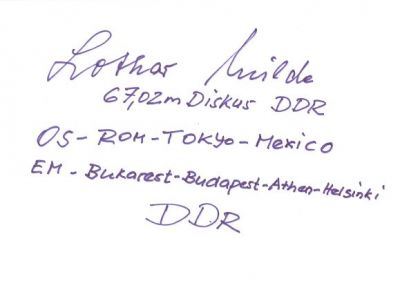 Lothar Milde
67,02m Diskus DDR
OS - ROM - TOKYO - MEXICO
EM - Bukarest - Budapest - Athen - Helsinki
DDR